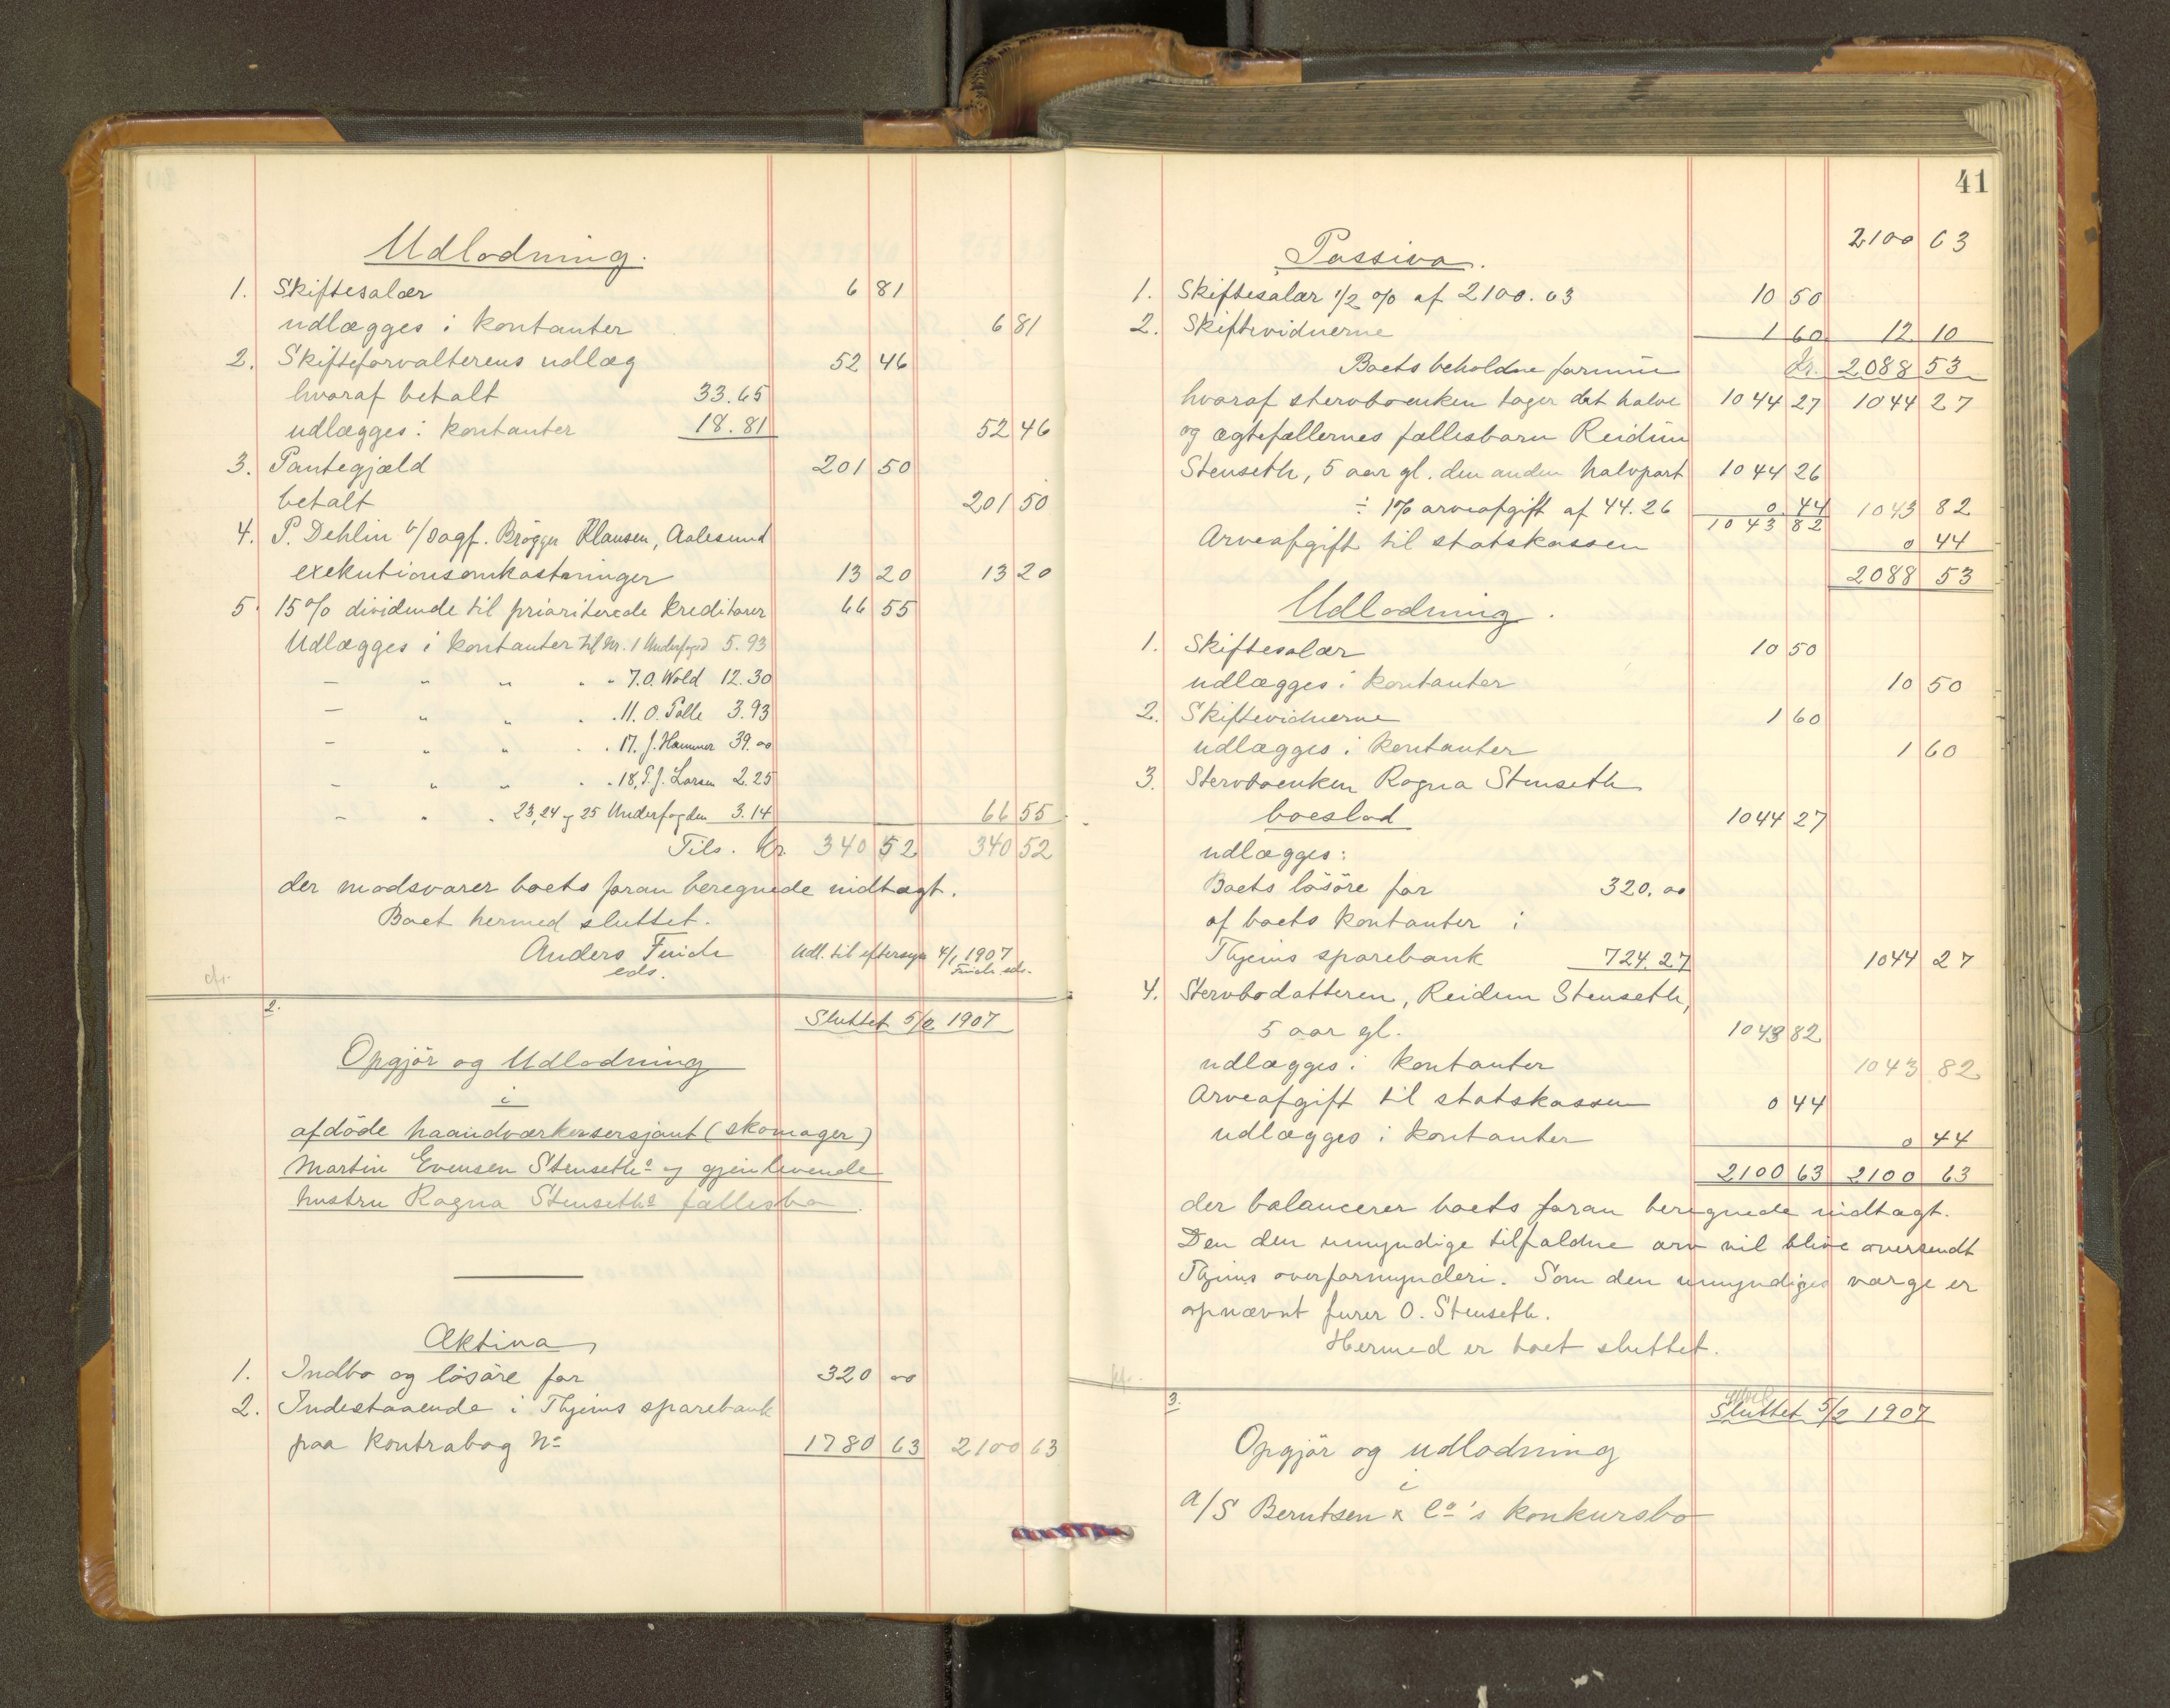 Udlodning.
1. Skiftesalær 6 81
udlægges i kontanter 6 81
2. Skifteforvalterens udlæg 52 46
hvoraf betalt 33.65
udlægges i kontanter 18.81 52 46
3. Pantegjæld 201 50
betalt 201 50
4. P. Dehlin v/sagf. Brögger Klausen, Aalesund
exekutionsomkostninger 13 20 13 20
5. 15% dividende til prioriterede kreditorer 66 55
Udlægges i kontanter til Nr. 1 Underfoged 5.93
— " " " " 7. O. Wold 12.30
— " " " . 11. O. Talle 3.93
— " " " . 17. J. Hammer 39.00
— " " " . 18, P. J. Larsen 2.25
— " " 23, 24 og 25 Underfogden 3.14 66 55
Tils. Kr. 340 52 340 52
der modsvarer boets foran beregnede indtægt.
Boet hermed sluttet.
Anders Frich Udl. til eftersyn 4/1 1907
eds. Frich eds.
2.
Sluttet 5/2 1907
Opgjör og Udlodning
i
afdöde haandværkersersjant (skomager)
Martin Evensen Stenseths og gjenlevende
hustru Ragna Stenseths fællesbo.
Aktiva
1. Indbo og lösöre for 320 00
2. Indestaaende i Thjems sparebank
paa kontrabog No 1780 63 2100 63
41
2100 63
Passiva.
1. Skiftesalær 1/2 % af 2100.63 10 50
2. Skiftevidnerne 1 60 12 10
Boets beholdne formue Kr. 2088 53
hvoraf stervboenken tager det halve 1044 27 1044 27
og ægtefællernes fællesbarn Reidun
Stenseth, 5 aar gl. den anden halvpart 1044 26
÷ 1% arveafgift af 44.26 0 44 1043 82
1043 82
Arveafgift til statskassen 0 44
2088 53
Udlodning.
1. Skiftesalær 10 50
udlægges i kontanter 10 50
2. Skiftevidnerne 1 60
udlægges i kontanter 1 60
3. Stervboenken Ragna Stenseth
boeslod 1044 27
udlægges:
Boets lösöre for 320.00
af boets kontanter i
Thjems sparebank 724.27 1044 27
4. Stervbodatteren, Reidun Stenseth,
5 aar gl. 1043 82
udlægges i kontanter 1043 82
Arveafgift til statskassen 0 44
udlægges i kontanter 0 44
2100 63 2100 63
der balancerer boets foran beregnede indtægt.
Den den umyndige tilfaldne arv vil blive oversendt
Thjems overformynderi. Som den umyndiges værge er
opnævnt furer O. Stenseth.
Hermed er boet sluttet.
3.
Sluttet 5/2 1907
Opgjör og udlodning
i
A/S Berntsen & Co's konkursbo